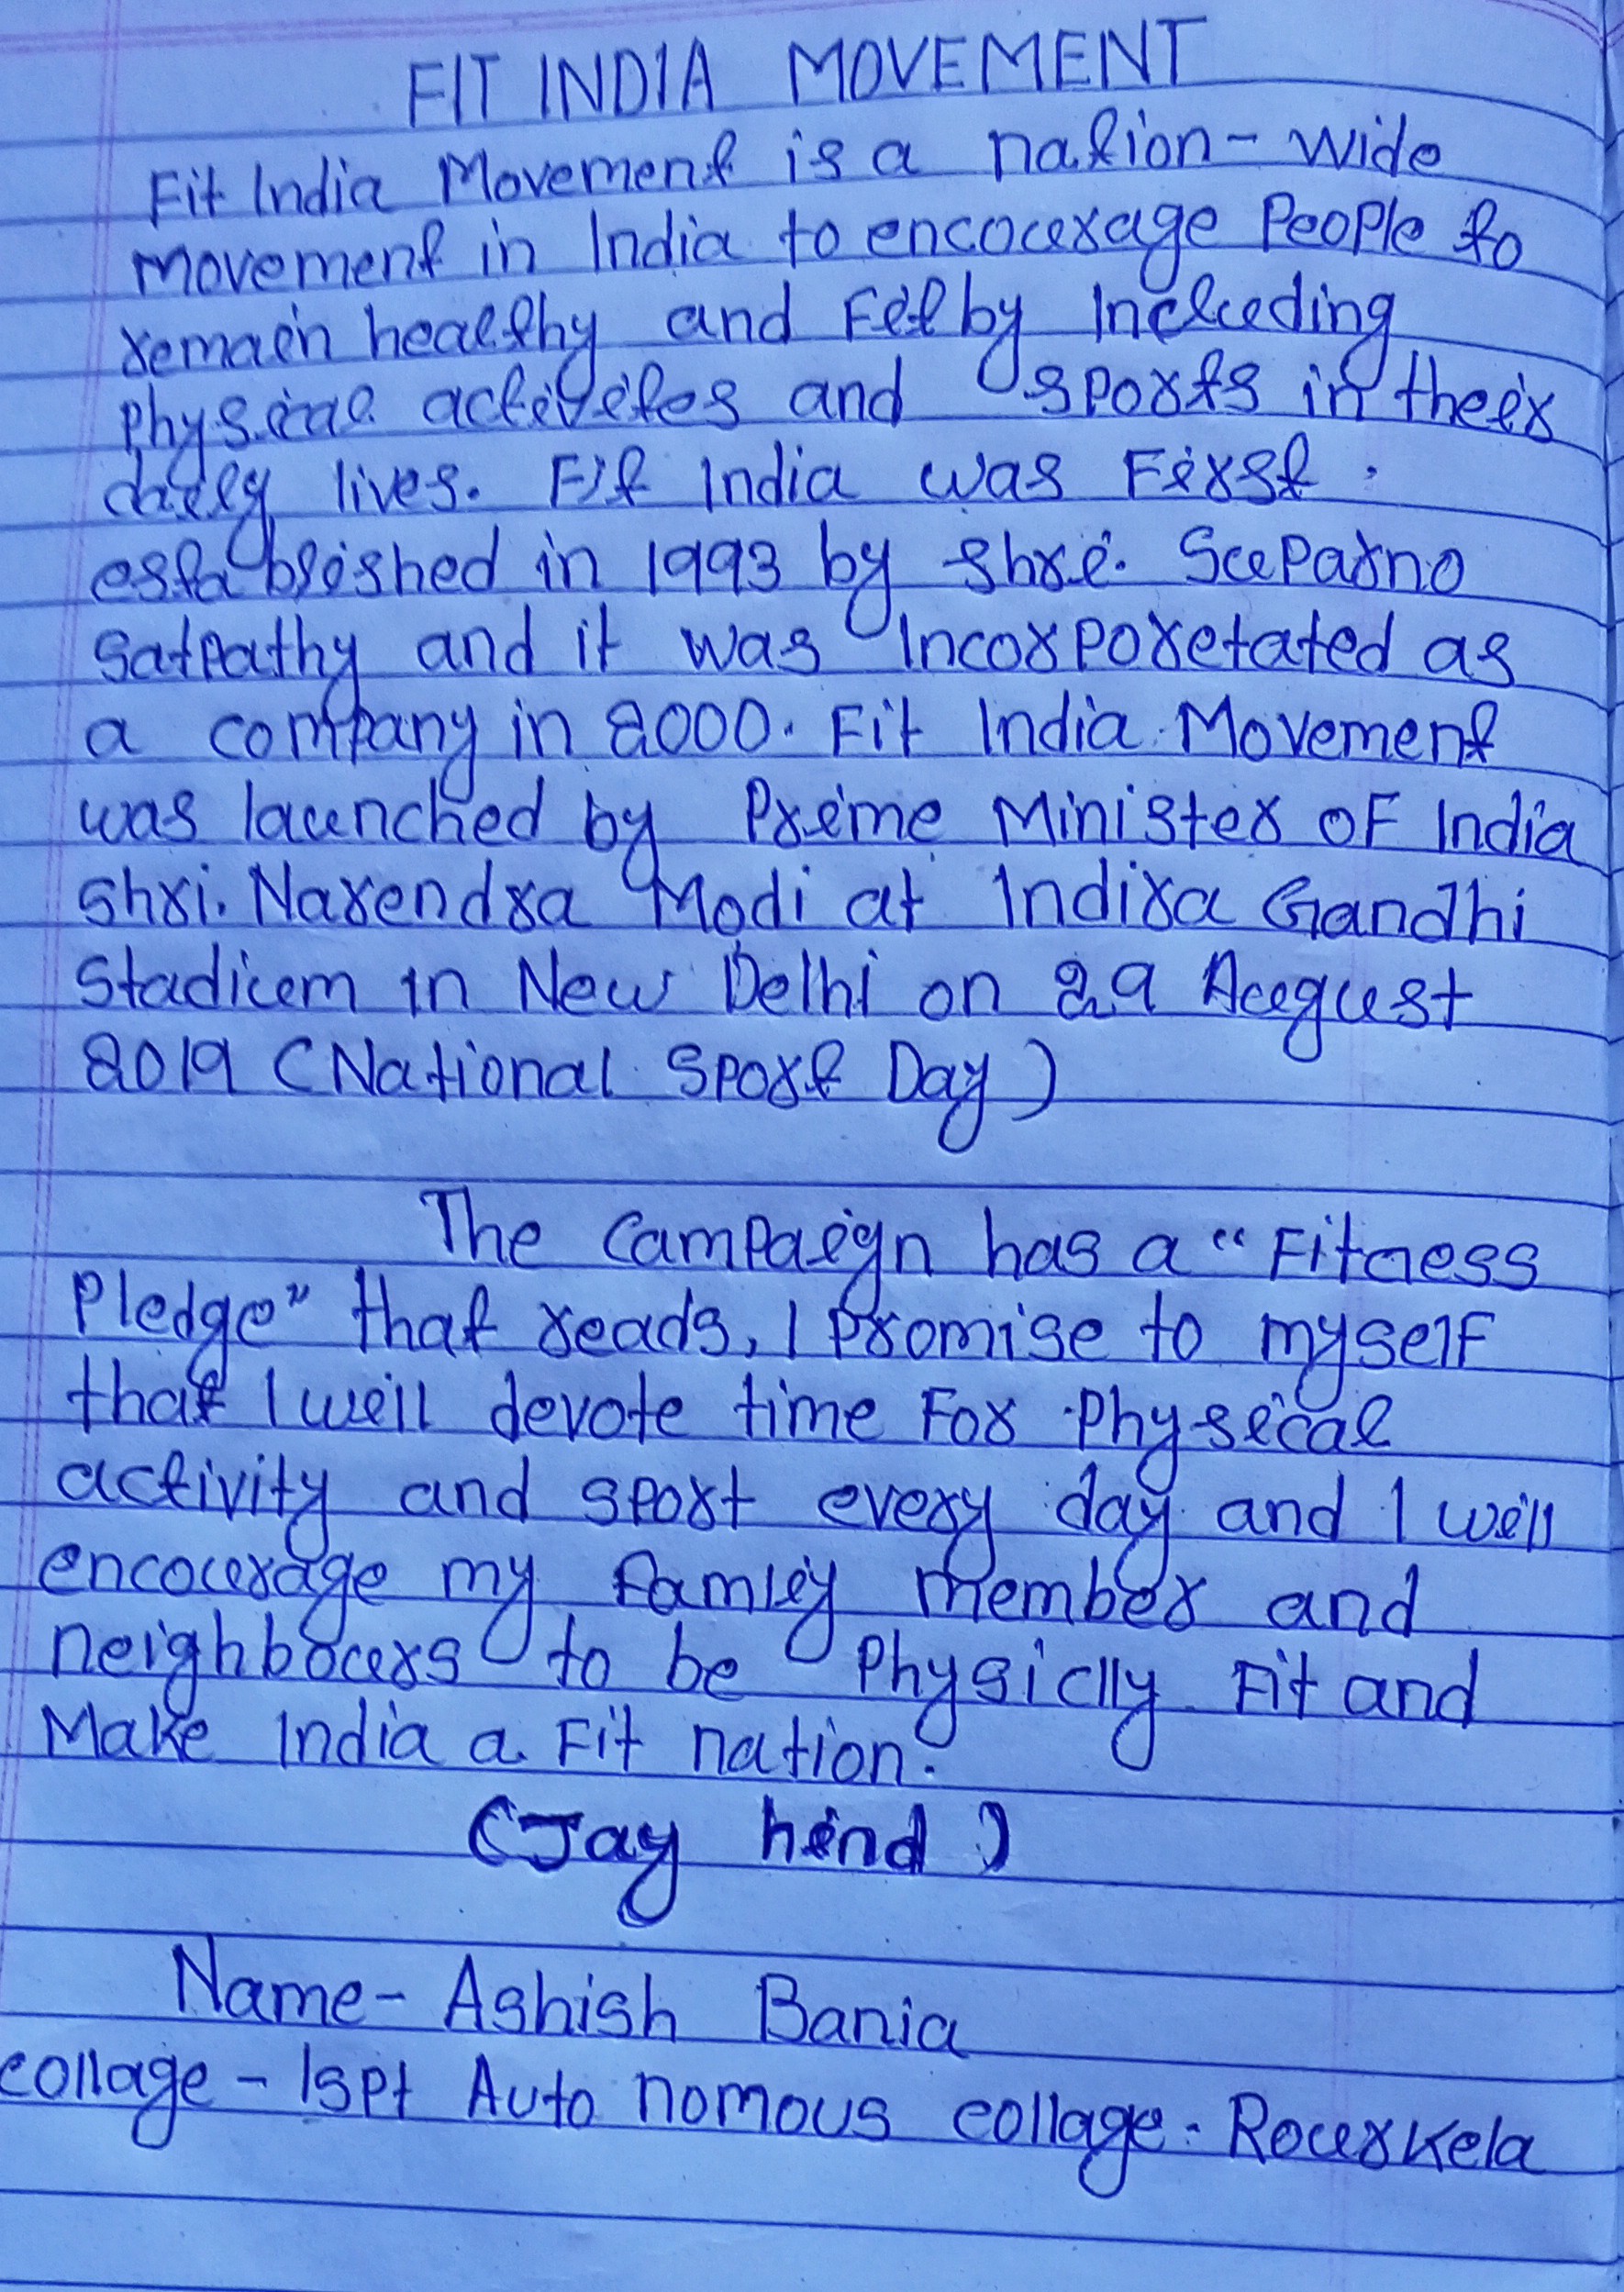 FIT INDIA MOVEMENT
Fit India Movement is a nation-wide
movement in India to encourage People to
remain healthy and Fit by Including
physical activites and sports in their
daily lives. Fit India was First
established in 1993 by shri. Suparno
Satpathy and it was Incorporetated as
a company in 2000. Fit India Movement
was launched by Prime Minister of India
Shri. Narendra Modi at Indira Gandhi
Stadium in New Delhi on 29 August
2019 (National Sport Day)
The Campaign has a "Fitness
Pledge" that reads, I Promise to myself
that I will devote time For Physical
activity and sport every day and I will
encourage my Famliy member and
neighbours to be Physiclly Fit and
Make India a Fit nation.
(Jay hind)
Name- Ashish Bania
collage - Ispt Auto nomous collage. Rourkela